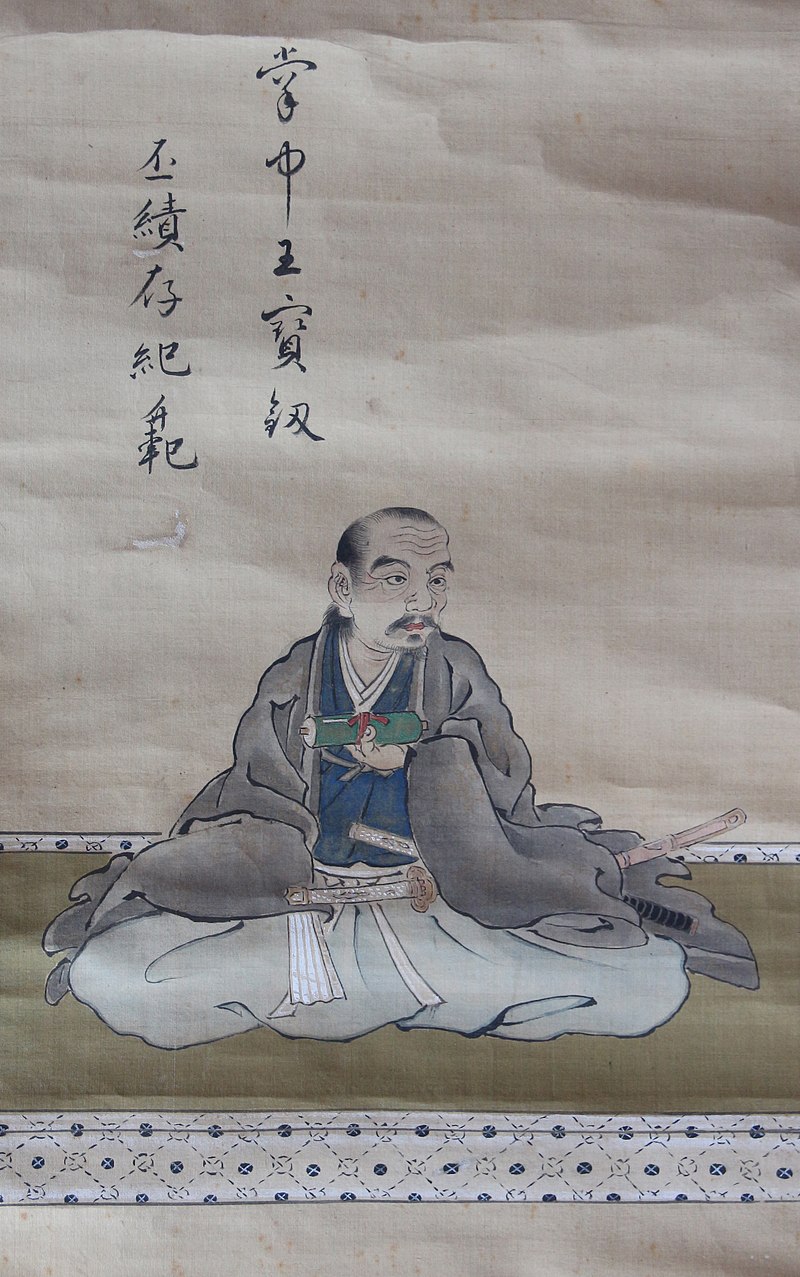 掌中王寶釼
丕績存紀範